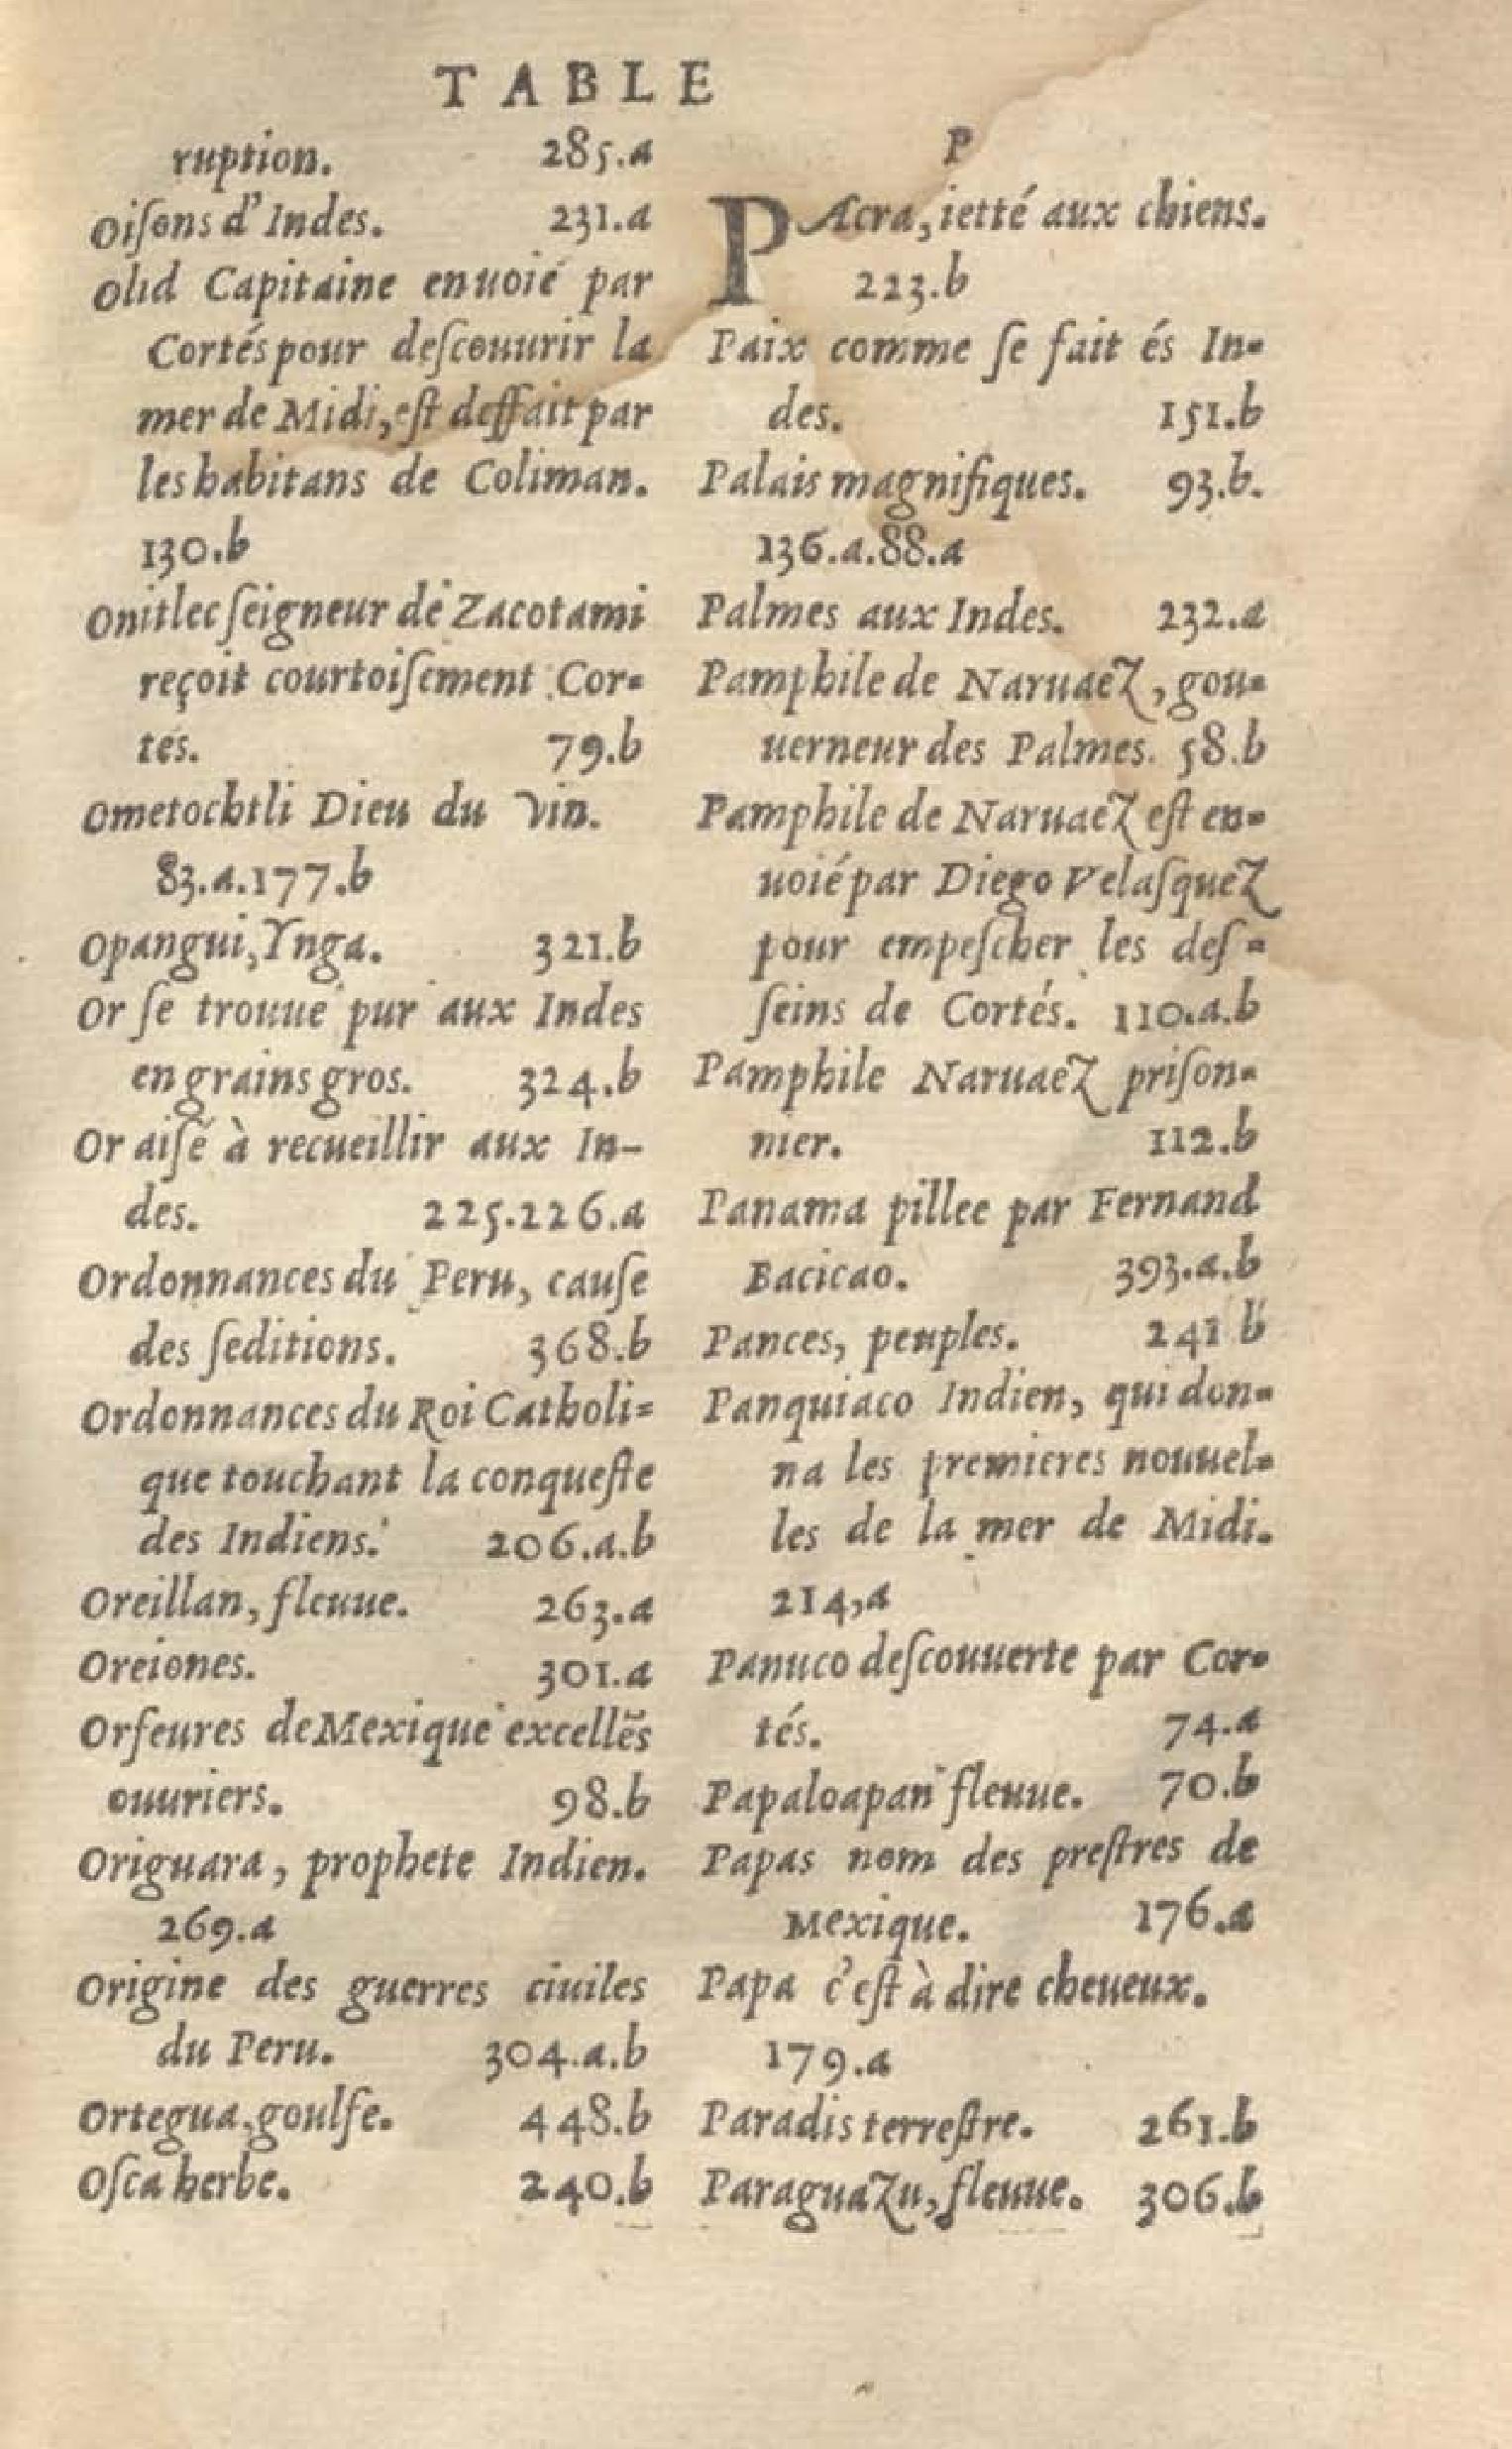 TABLE
ruption. 285.a
Oiſons d'Indes. 231.a
Olid Capitaine enuoié par
Cortés pour deſcouurir la
mer de Midi, eſt deffait par
les habitans de Coliman.
130.b
Onitlec ſeigneur de Zacotami
reçoit courtoiſement Cor-
tés. 79.b
Ometochtli Dieu du vin.
83.a.177.b
Opangui, Ynga. 321.b
Or ſe trouue pur aux Indes
en grains gros. 324.b
Or aiſé à recueillir aux In-
des. 225.226.a
Ordonnances du Peru, cauſe
des ſeditions. 368.b
Ordonnances du Roi Catholi-
que touchant la conqueſte
des Indiens. 206.a.b
Oreillan, fleuue. 263.a
Oreiones. 301.a
Orfeures de Mexique excellẽs
ouuriers. 98.b
Origuara, prophete Indien.
269.a
Origine des guerres ciuiles
du Peru. 304.a.b
Ortegua, goulfe. 448.b
Oſca herbe. 240.b
P
PAcra, ietté aux chiens.
223.b
Paix comme ſe fait és In-
des. 151.b
Palais magnifiques. 93.b.
136.a.88.a
Palmes aux Indes. 232.a
Pamphile de Naruaez, gou-
uerneur des Palmes. 58.b
Pamphile de Naruaez eſt en-
uoié par Diego Velaſquez
pour empeſcher les deſ-
ſeins de Cortés. 110.a.b
Pamphile Naruaez priſon-
nier. 112.b
Panama pillee par Fernand
Bacicao. 393.a.b
Pances, peuples. 241 b
Panquiaco Indien, qui don-
na les premieres nouuel-
les de la mer de Midi.
214,a
Panuco deſcouuerte par Cor-
tés. 74.a
Papaloapan fleuue. 70.b
Papas nom des preſtres de
Mexique. 176.a
Papa c'eſt à dire cheueux.
179.a
Paradis terreſtre. 261.b
Paraguazu, fleuue. 306.b